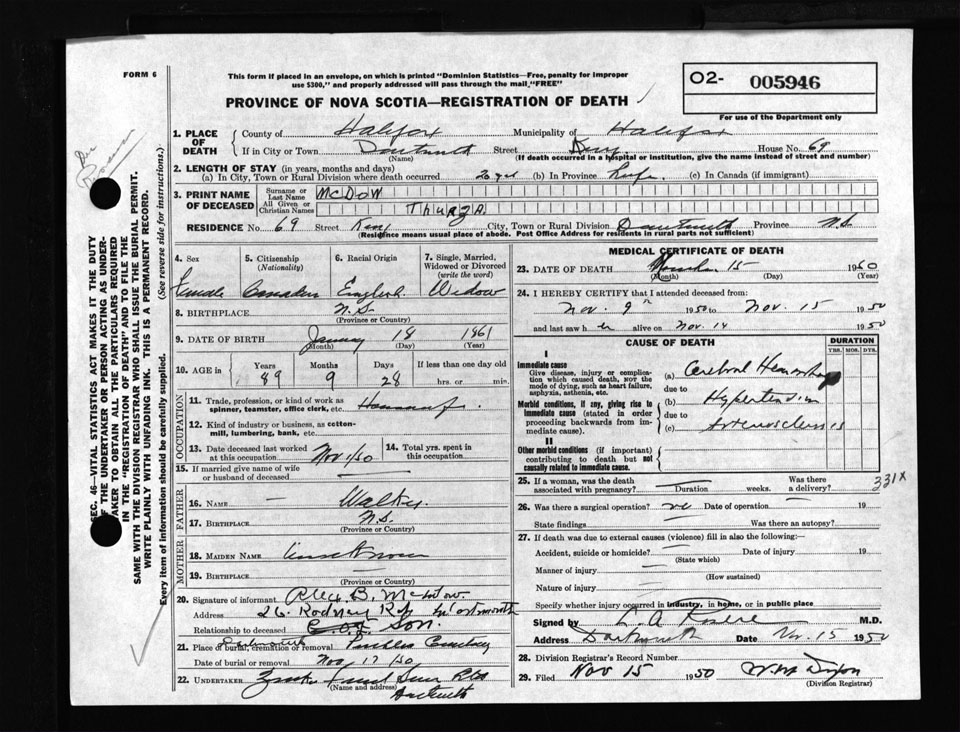 FORM 6
This form if placed in an envelope, on which is printed "Dominion Statistics—Free, penalty for improper
use $300," and properly addressed will pass through the mail "FREE"
O2- 005946
For use of the Department only
PROVINCE OF NOVA SCOTIA—REGISTRATION OF DEATH
1. PLACE OF DEATH
County of Halifax Municipality of Halifax
If in City or Town Dartmouth Street King House No. 69
(Name) (If death occurred in a hospital or institution, give the name instead of street and number)
2. LENGTH OF STAY (in years, months and days)
(a) In City, Town or Rural Division where death occurred 20 yrs (b) In Province Life (c) In Canada (if immigrant)
3. PRINT NAME OF DECEASED
Surname or Last Name McDOW
All Given or Christian Names ThURZA
RESIDENCE No. 69 Street King City, Town or Rural Division Dartmouth Province N.S.
(Residence means usual place of abode. Post Office Address for residents in rural parts not sufficient)
4. Sex
Female
5. Citizenship
(Nationality)
Canadian
6. Racial Origin
English
7. Single, Married,
Widowed or Divorced
(write the word)
Widow
8. BIRTHPLACE N.S.
(Province or Country)
9. DATE OF BIRTH January 18 1861
(Month) (Day) (Year)
10. AGE in Years Months Days If less than one day old
89 9 28 hrs. or min.
OCCUPATION
11. Trade, profession, or kind of work as
spinner, teamster, office clerk, etc. Housewife.
12. Kind of industry or business, as cotton-
mill, lumbering, bank, etc.
13. Date deceased last worked
at this occupation Nov 1/50
14. Total yrs. spent in
this occupation
15. If married give name of wife
or husband of deceased
FATHER
16. NAME — Walker
17. BIRTHPLACE N.S.
(Province or Country)
MOTHER
18. MAIDEN NAME
19. BIRTHPLACE —
(Province or Country)
20. Signature of informant Alex. B. McDow.
Address 26 Rodney Rd Dartmouth
Relationship to deceased Son.
21. Place of burial, cremation or removal Cemetery
Date of burial or removal Nov 17/50
22. UNDERTAKER
(Name and address)
Dartmouth
MEDICAL CERTIFICATE OF DEATH
23. DATE OF DEATH November 15 1950
(Month) (Day) (Year)
24. I HEREBY CERTIFY that I attended deceased from:
Nov. 9 1950 to Nov. 15 1950
and last saw her alive on Nov. 14 1950
CAUSE OF DEATH
DURATION
YRS. MOS. DYS.
I
Immediate cause
Give disease, injury or complica-
tion which caused death, NOT the
mode of dying, such as heart failure,
asphyxia, asthenia, etc.
(a) Cerebral Hemorrhage
due to
Morbid conditions, if any, giving rise to
immediate cause (stated in order
proceeding backwards from im-
mediate cause).
(b) Hypertension
due to
(c) Arteriosclerosis
II
Other morbid conditions (if important)
contributing to death but not
causally related to immediate cause.
25. If a woman, was the death
associated with pregnancy? Duration weeks. Was there
a delivery?
331X
26. Was there a surgical operation? no Date of operation 19
State findings Was there an autopsy?
27. If death was due to external causes (violence) fill in also the following:
Accident, suicide or homicide? Date of injury 19
(State which)
Manner of injury
(How sustained)
Nature of injury
Specify whether injury occurred in industry, in home, or in public place
Signed by M.D.
Address Dartmouth Date Nov. 15 1950
28. Division Registrar's Record Number
29. Filed Nov 15 1950
(Division Registrar)
SEC. 46—VITAL STATISTICS ACT MAKES IT THE DUTY
OF THE UNDERTAKER OR PERSON ACTING AS UNDER-
TAKER TO OBTAIN ALL THE PARTICULARS REQUIRED
IN THE "REGISTRATION OF DEATH" AND TO FILE THE
SAME WITH THE DIVISION REGISTRAR WHO SHALL ISSUE THE BURIAL PERMIT.
WRITE PLAINLY WITH UNFADING INK. THIS IS A PERMANENT RECORD.
Every item of information should be carefully supplied. (See reverse side for instructions.)